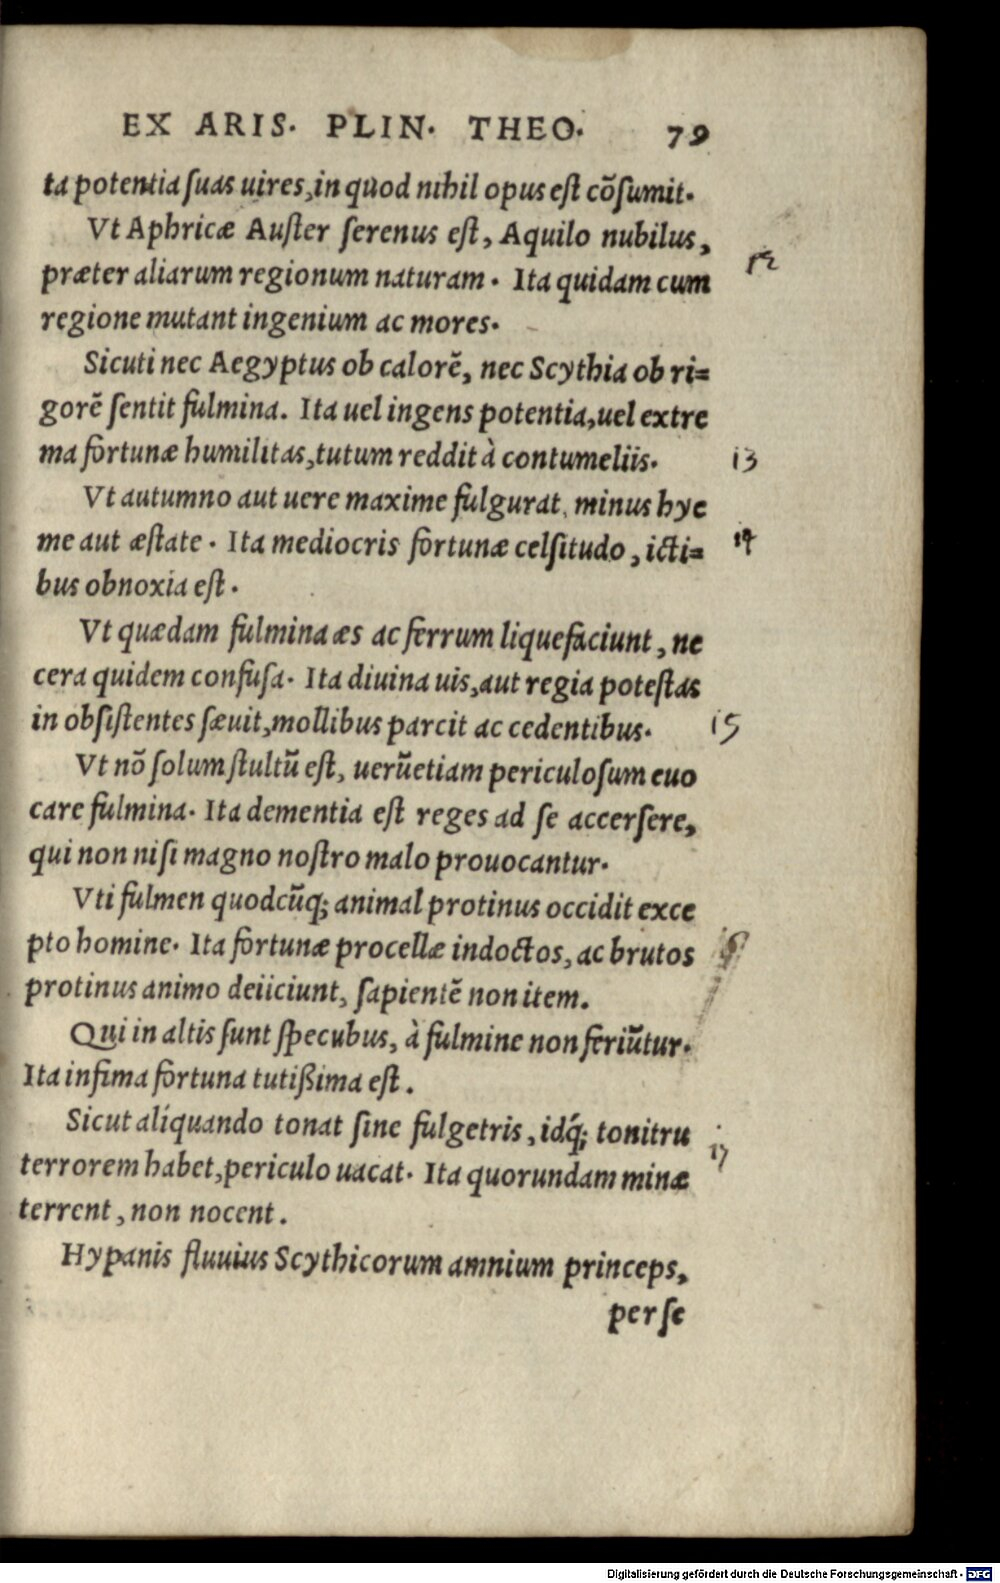 EX ARIS. PLIN. THEO. 79
ta potentia suas uires, in quod nihil opus est cõsumit.
Vt Aphricæ Auster serenus est, Aquilo nubilus,
12
præter aliarum regionum naturam. Ita quidam cum
regione mutant ingenium ac mores.
Sicuti nec Aegyptus ob calorẽ, nec Scythia ob ri=
gorẽ sentit fulmina. Ita uel ingens potentia, uel extre
ma fortunæ humilitas, tutum reddit à contumeliis.
13
Vt autumno aut uere maxime fulgurat, minus hye
me aut æstate. Ita mediocris fortunæ celsitudo, icti=
14
bus obnoxia est.
Vt quædam fulmina æs ac ferrum liquefaciunt, ne
cera quidem confusa. Ita diuina uis, aut regia potestas
in obsistentes sæuit, mollibus parcit ac cedentibus.
15
Vt nõ solum stultũ est, uerũetiam periculosum euo
care fulmina. Ita dementia est reges ad se accersere,
qui non nisi magno nostro malo prouocantur.
Vti fulmen quodcũq; animal protinus occidit exce
pto homine. Ita fortunæ procellæ indoctos, ac brutos
protinus animo deiiciunt, sapientẽ non item.
Qui in altis sunt specubus, à fulmine non feriũtur.
Ita infima fortuna tutißima est.
Sicut aliquando tonat sine fulgetris, idq́; tonitru
17
terrorem habet, periculo uacat. Ita quorundam minæ
terrent, non nocent.
Hypanis fluuius Scythicorum amnium princeps,
per se
Digitalisierung gefördert durch die Deutsche Forschungsgemeinschaft - DFG